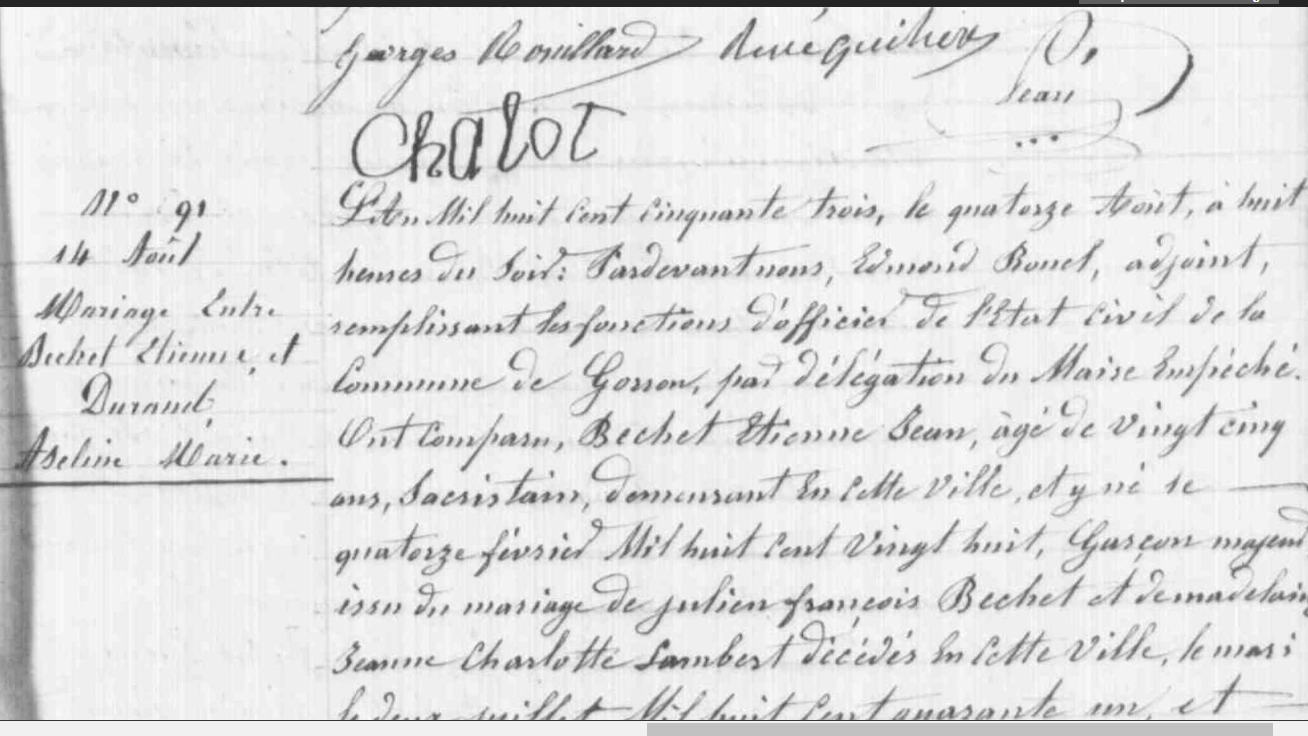 Georges Rouillard
Jean
Chalot
N° 91
14 Août
Mariage Entre
Bechet Etienne et
Durand
Aseline Marie.
L'An Mil huit Cent Cinquante trois, le quatorze Août, à huit
heures du Soir: Pardevant nous, Edmond Bouel, adjoint,
remplissant les fonctions d'officier de l'Etat Civil de la
Commune de Gorron, par délégation du Maire Empêché.
Ont Comparu, Bechet Etienne Jean, âgé de Vingt cinq
ans, Sacristain, demeurant En Cette Ville, et y né le
quatorze février Mil huit Cent Vingt huit, Garçon majeur
issu du mariage de julien françois Bechet et de madelaine
Jeanne Charlotte Lambert décédés En Cette Ville, le mari
le deux juillet Mil huit Cent quarante un, et